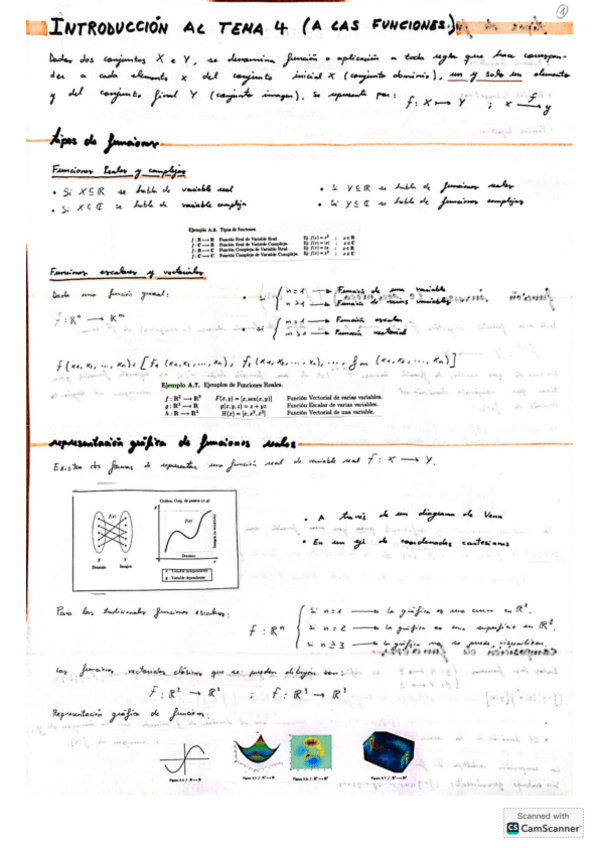 1
INTRODUCCIÓN AL TEMA 4 (A LAS FUNCIONES.)
Dados dos conjuntos X e Y, se denomina función o aplicación a toda regla que hace correspon-
der a cada elemento x del conjunto inicial X (conjunto dominio), un y solo un elemento
y del conjunto final Y (conjunto imagen). Se representa por: f: X → Y ; x →f y
tipos de funciones
Funciones Reales y complejas
• Si X⊆ℝ se habla de variable real
• Si Y⊆ℝ se habla de funciones reales
• Si X⊆ℂ se habla de variable compleja
• Si Y⊆ℂ se habla de funciones complejas
Ejemplo A.6. Tipos de funciones.
f : ℝ → ℝ Función Real de Variable Real.
f : ℂ → ℝ Función Real de Variable Compleja.
f : ℝ → ℂ Función Compleja de Variable Real.
f : ℂ → ℂ Función Compleja de Variable Compleja.
Funciones escalares y vectoriales
Dada una función general:
f: ℝⁿ → ℝᵐ
• Si { n=1 → Función de una variable
n>1 → Función de varias variables
• Si { m=1 → Función escalar
m>1 → Función vectorial
f(x₁, x₂, ..., xₙ) = [f₁(x₁, x₂, ..., xₙ), f₂(x₁, x₂, ..., xₙ), ..., fₘ(x₁, x₂, ..., xₙ)]
Ejemplo A.7. Ejemplos de Funciones Reales.
f : ℝ² → ℝ² F(x, y) = [x, sen(x, y)] Función Vectorial de varias variables.
g : ℝ³ → ℝ g(x, y, z) = x + yz Función Escalar de varias variables.
h : ℝ → ℝ³ H(x) = [x, x², x³] Función Vectorial de una variable.
representación gráfica de funciones reales
Existen dos formas de representar una función real de variable real f: X → Y.
Gráfica: Conj. de puntos (x, y)
f(x)
Dominio
Imagen
x Variable independiente
y Variable dependiente
• A través de un diagrama de Venn
• En un eje de coordenadas cartesianas
Para las tradicionales funciones escalares:
f: ℝⁿ { Si n=1 → la gráfica es una curva en ℝ².
Si n=2 → la gráfica es una superficie en ℝ³.
Si n≥3 → la gráfica no se puede visualizar.
Las funciones vectoriales clásicas que se pueden dibujar son:
f: ℝ² → ℝ² ; f: ℝ³ → ℝ³
Representación gráfica de funciones:
Scanned with
CS CamScanner